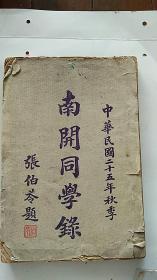 中華民國二十五年秋季
南開同學錄
張伯苓題